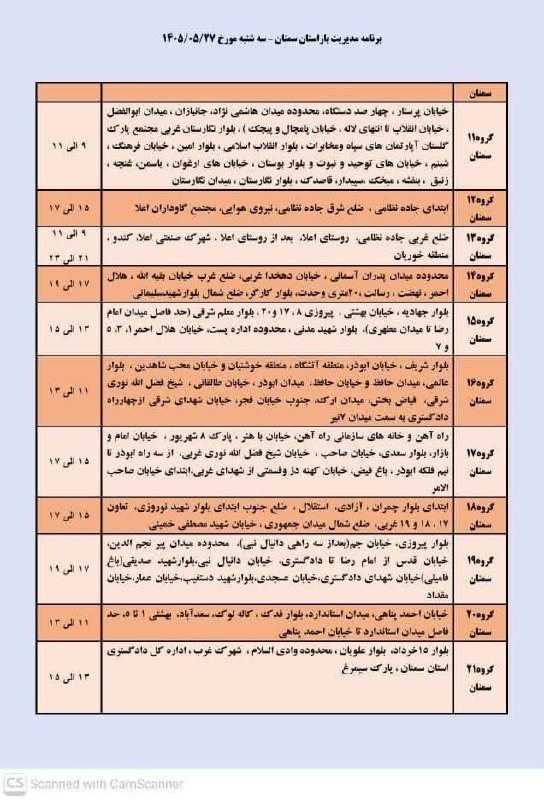 برنامه مدیریت بار استان سمنان - سه شنبه مورخ ۱۴۰۵/۰۵/۲۷
سمنان
گروه۱۱ سمنان
خیابان پرستار ، چهار صد دستگاه، محدوده میدان هاشمی نژاد، جانبازان ، میدان ابوالفضل
، خیابان انقلاب تا انتهای لاله . خیابان پامچال و پیچک ) ، بلوار نگارستان غربی مجتمع پارک
گلستان آپارتمان های سپاه ومخابرات ، بلوار انقلاب اسلامی ، بلوار امین ، خیابان فرهنگ ،
شبنم ، خیابان های توحید و نبوت و بلوار بوستان ، خیابان های ارغوان ، یاسمن، غنچه ،
زنبق ، بنفشه ، میخک ،سپیدار، قاصدک ، بلوار نگارستان ، میدان نگارستان
۹ الی ۱۱
گروه۱۲ سمنان
ابتدای جاده نظامی ، ضلع شرق جاده نظامی، نیروی هوایی، مجتمع گاوداران اعلا
۱۵ الی ۱۷
گروه۱۳ سمنان
ضلع غربی جاده نظامی، روستای اعلا، بعد از روستای اعلا ، شهرک صنعتی اعلا، کندو ،
منطقه خوریان
۹ الی ۱۱
۲۱ الی ۲۳
گروه۱۴ سمنان
محدوده میدان پدران آسمانی ، خیابان دهخدا غربی، ضلع غرب خیابان بقیه الله ، هلال
احمر ، نهضت ، رسالت ،۲۰متری وحدت، بلوار کارگر، ضلع شمال بلوارشهیدسلیمانی
۱۷ الی ۱۹
گروه۱۵ سمنان
بلوار جهادیه ، خیابان بهشتی . پیروزی ۸ ، ۱۷ و۲۰ ، بلوار معلم شرقی (حد فاصل میدان امام
رضا تا میدان مطهری)، بلوار شهید مدنی ، محدوده اداره پست، خیابان هلال احمر۱، ۳، ۵
و ۷
۱۳ الی ۱۵
گروه۱۶ سمنان
بلوار شریف ، خیابان ابوذر، منطقه آتشگاه ، منطقه خوشتیان و خیابان محب شاهدین ، بلوار
عالمی، میدان حافظ و خیابان حافظ، میدان ابوذر ، خیابان طالقانی ، شیخ فضل الله نوری
شرقی، فیاض بخش، میدان ارک، جنوب خیابان فجر، خیابان شهدای شرقی ازچهارراه
دادگستری به سمت میدان ۷تیر
۱۱ الی ۱۳
گروه۱۷ سمنان
راه آهن و خانه های سازمانی راه آهن، خیابان با هنر ، پارک ۸ شهریور ، خیابان امام و
بازار، بلوار سعدی، خیابان صاحب ، خیابان شیخ فضل الله نوری غربی، از سه راه ابوذر تا
نیم فلکه ابوذر ، باغ فیض، خیابان کهنه دژ وقسمتی از شهدای غربی،ابتدای خیابان صاحب
الامر
۱۵ الی ۱۷
گروه۱۸ سمنان
ابتدای بلوار چمران ، آزادی، استقلال ، ضلع جنوب ابتدای بلوار شهید نوروزی، تعاون
۱۷ ، ۱۸ و ۱۹ غربی، ضلع شمال میدان جمهوری ، خیابان شهید مصطفی خمینی
۱۵ الی ۱۷
گروه۱۹ سمنان
بلوار پیروزی، خیابان جم(بعداز سه راهی دانیال نبی)، محدوده میدان پیر نجم الدین،
خیابان قدس از امام رضا تا دادگستری، خیابان دانیال نبی،بلوارشهید صدیقی(باغ
فامیلی)خیابان شهدای دادگستری، خیابان عسجدی،بلوارشهید دستغیب،خیابان عمار،خیابان
مقداد
۱۷ الی ۱۹
گروه۲۰ سمنان
خیابان احمد پناهی، میدان استاندارد، بلوار فدک ، کاله نوک، سعدآباد، بهشتی ۱ تا ۵، حد
فاصل میدان استاندارد تا خیابان احمد پناهی
۱۱ الی ۱۳
گروه۲۱ سمنان
بلوار ۱۵خرداد، بلوار علویان ، محدوده وادی السلام ، شهرک غرب ، اداره کل دادگستری
استان سمنان ، پارک سیمرغ
۱۳ الی ۱۵
CS Scanned with CamScanner